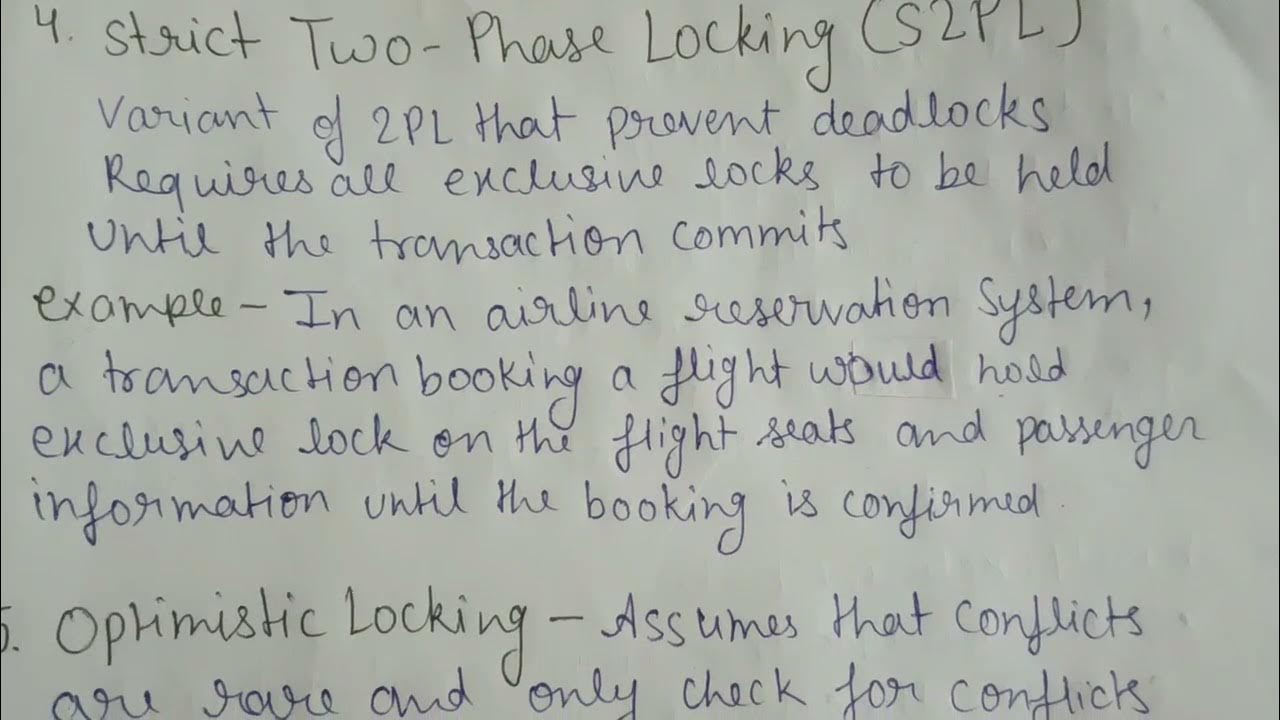 4. Strict Two-Phase Locking (S2PL)
Variant of 2PL that prevent deadlocks
Requires all exclusive locks to be held
until the transaction commits
example - In an airline reservation System,
a transaction booking a flight would hold
exclusive lock on the flight seats and passenger
information until the booking is confirmed
5. Optimistic Locking - Assumes that conflicts
are rare and only check for conflicts